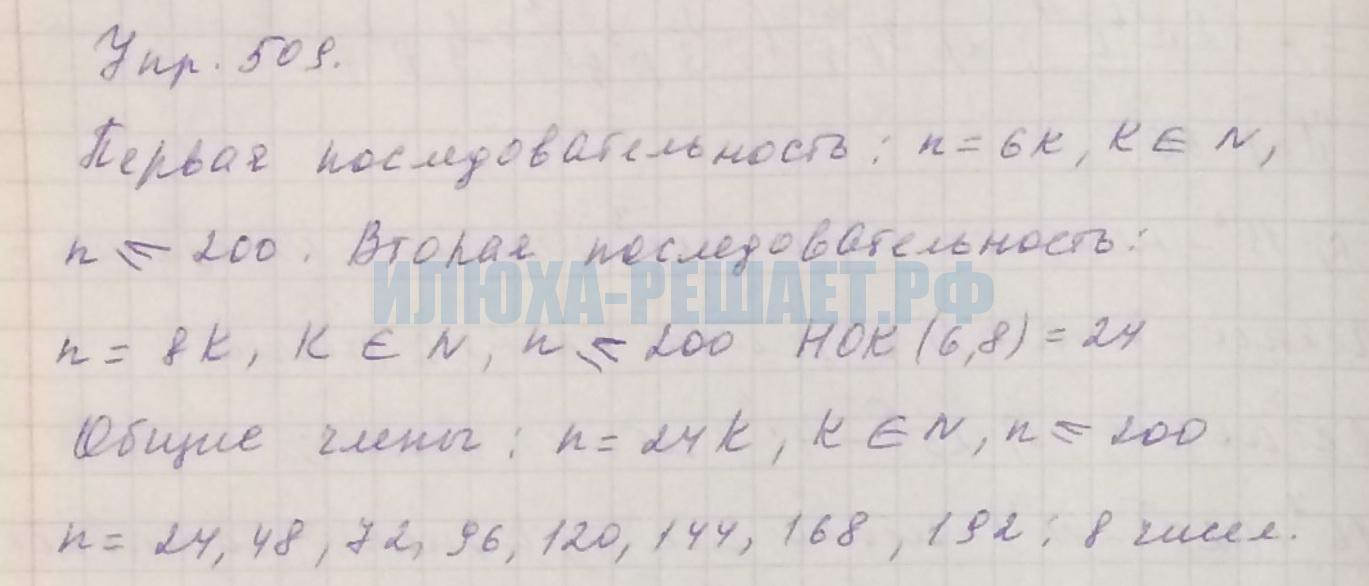 Упр. 509.
Первая последовательность: n = 6k, k ∈ N,
n ≤ 200. Вторая последовательность:
ИЛЮХА-РЕШАЕТ.РФ
n = 8k, k ∈ N, n ≤ 200 НОК (6,8) = 24
Общие члены: n = 24k, k ∈ N, n ≤ 200
n = 24, 48, 72, 96, 120, 144, 168, 192; 8 чисел.